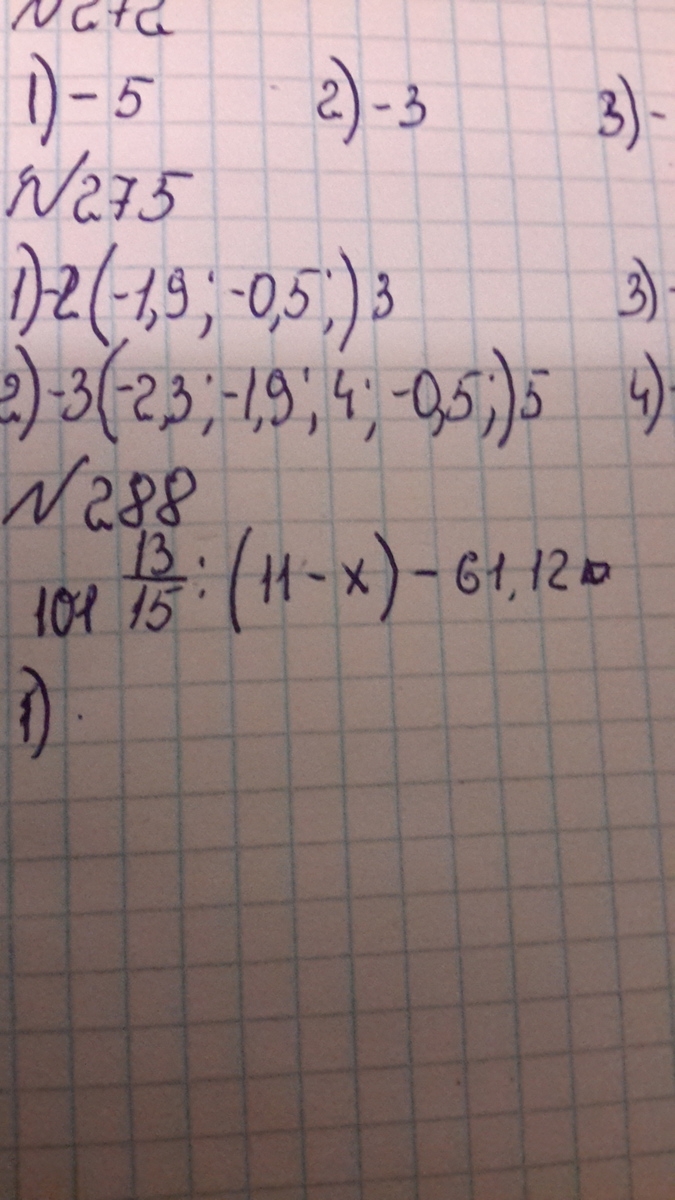 №272
1) -5 2) -3 3) -
№275
1) -2 (-1,9; -0,5;) 3 3) -
2) -3 (-2,3; -1,9; 4; -0,5;) 5 4) -
№288
101 13/15 : (11 - x) - 61,12
1) .